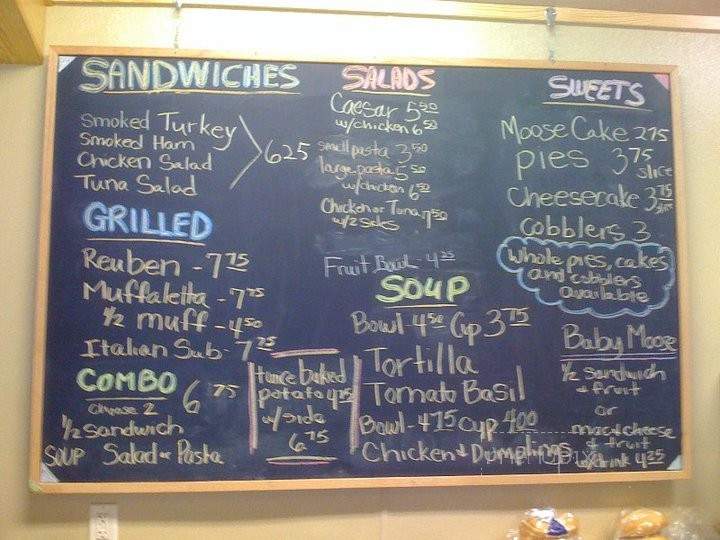 SANDWICHES
Smoked Turkey
Smoked Ham
Chicken Salad
Tuna Salad
625
GRILLED
Reuben - 7 75
Muffaletta - 7 75
1/2 muff - 4 50
Italian Sub - 7 75
COMBO
6 75
choose 2
1/2 sandwich
SOUP Salad or Pasta
twice baked
potato 4 75
w/side
6 75
SALADS
Caesar 5 50
w/chicken 6 50
small pasta 3 50
large pasta 5 50
w/chicken 6 50
Chicken or Tuna 7 50
w/2 sides
Fruit Bowl - 4 25
SOUP
Bowl 4 50 Cup 3 75
Tortilla
Tomato Basil
Bowl - 4 75 cup 4 00
Chicken & Dumplings
SWEETS
Moose Cake 2 75
pies 3 75
slice
Cheesecake 3 75
slice
cobblers 3
whole pies, cakes
and cobblers
available
Baby Moose
1/2 sandwich
& fruit
or
mac & cheese
& fruit
w/drink 4 25